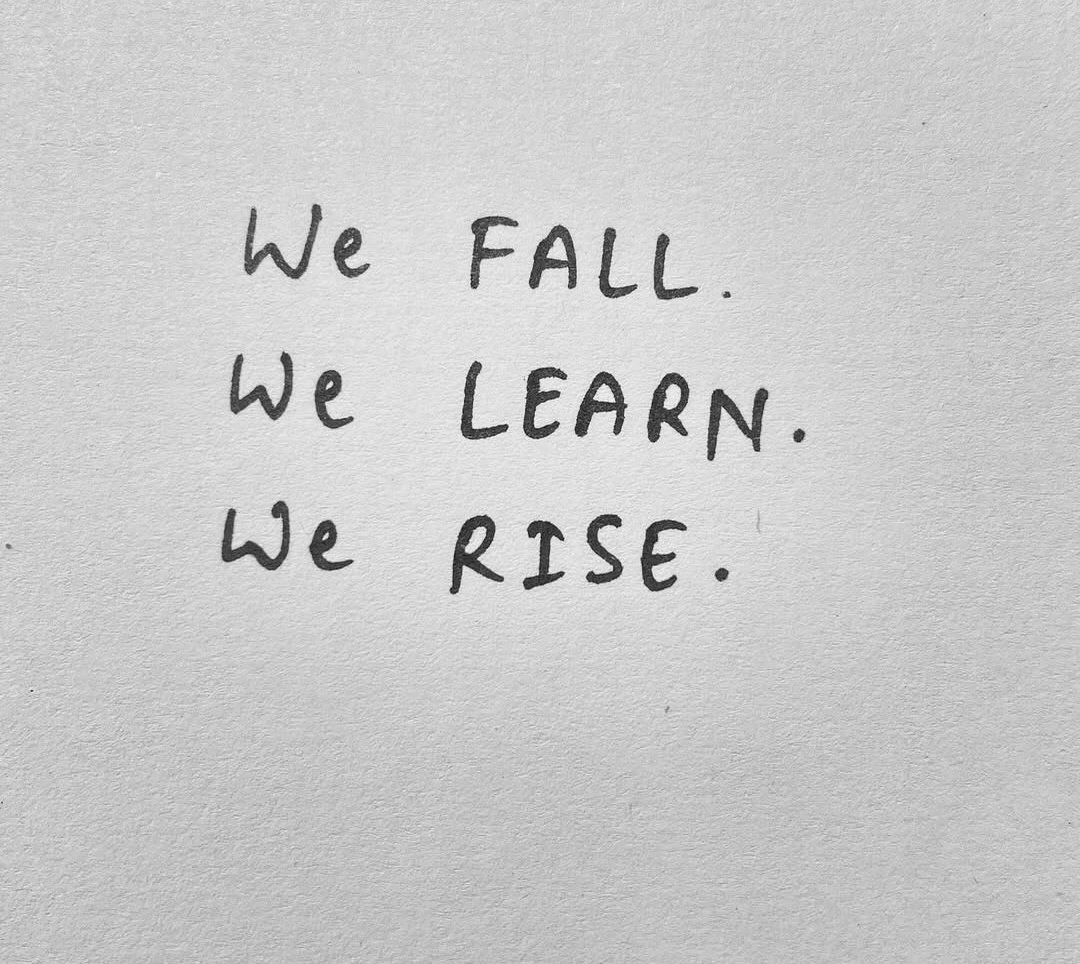 We FALL.
We LEARN.
We RISE.